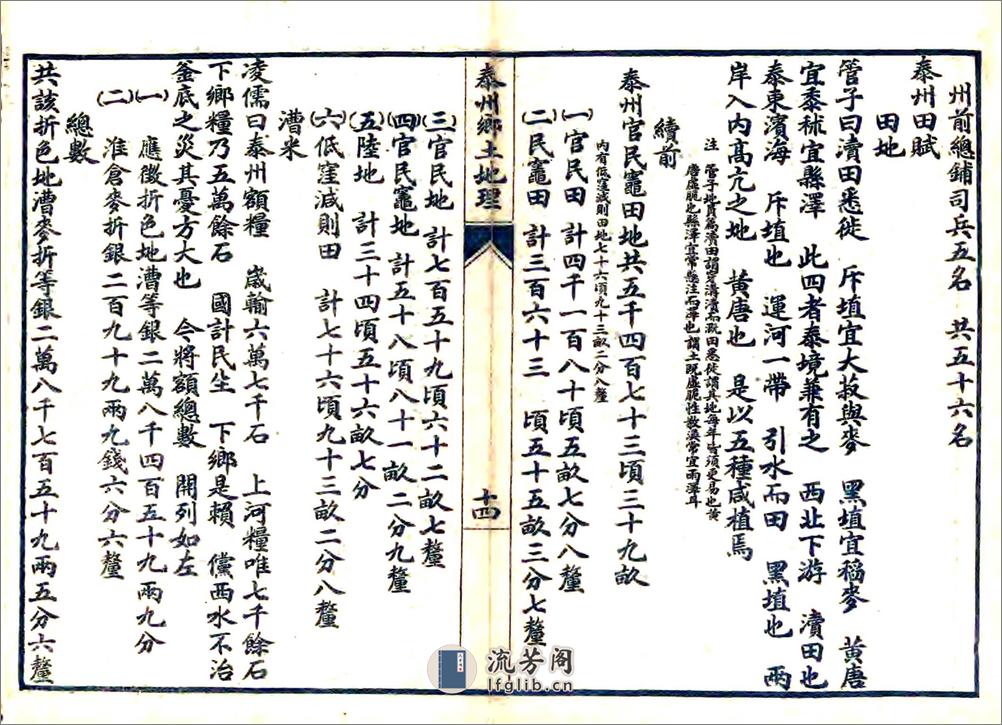 州前總鋪司兵五名　共五十六名
泰州田賦
田地
管子曰瀆田悉徙　斥埴宜大菽與麥　黑埴宜稻麥　黃唐
宜黍秫宜縣澤　此四者泰境兼有之　西北下游　瀆田也
泰東濱海　斥埴也　運河一帶　引水而田　黑埴也　兩
岸入內高亢之地　黃唐也　是以五種咸植焉
注　管子地員篇瀆田謂穿溝瀆而溉田悉徙謂其地每年皆須更易也黃
唐虛脆也縣澤宜常懸注而澤也謂土既虛脆性散渙常宜雨澤耳
續前
泰州官民竈田地共五千四百七十三頃三十九畝
內有低窪減則田地七十六頃九十三畝二分八釐
(一)官民田　計四千一百八十頃五畝七分八釐
(二)民竈田　計三百六十三　頃五十五畝三分七釐
泰州鄉土地理
十四
(三)官民地　計七百五十九頃六十二畝七釐
(四)官民竈地　計五十八頃八十一畝二分九釐
(五)陸地　計三十四頃五十六畝七分
(六)低窪減則田　計七十六頃九十三畝二分八釐
漕米
凌儒曰泰州額糧　歲輸六萬七千石　上河糧唯七千餘石
下鄉糧乃五萬餘石　國計民生　下鄉是賴　儻西水不治
釜底之災其憂方大也　今將額總數　開列如左
(一)　應徵折色地漕等銀二萬八千四百五十九兩九分
(二)　准倉麥折銀二百九十九兩九錢六分六釐
總數
共該折色地漕麥折等銀二萬八千七百五十九兩五分六釐
流芳閣
lfglib.cn